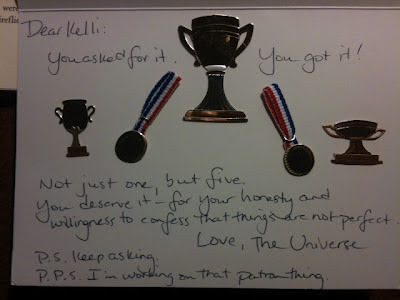 were
ireflie
Dear Kelli:
You asked for it. You got it!
Not just one, but five.
You deserve it - for your honesty and
willingness to confess that things are not perfect.
Love, The Universe
P.S. Keep asking.
P.P.S. I'm working on that patron thing.